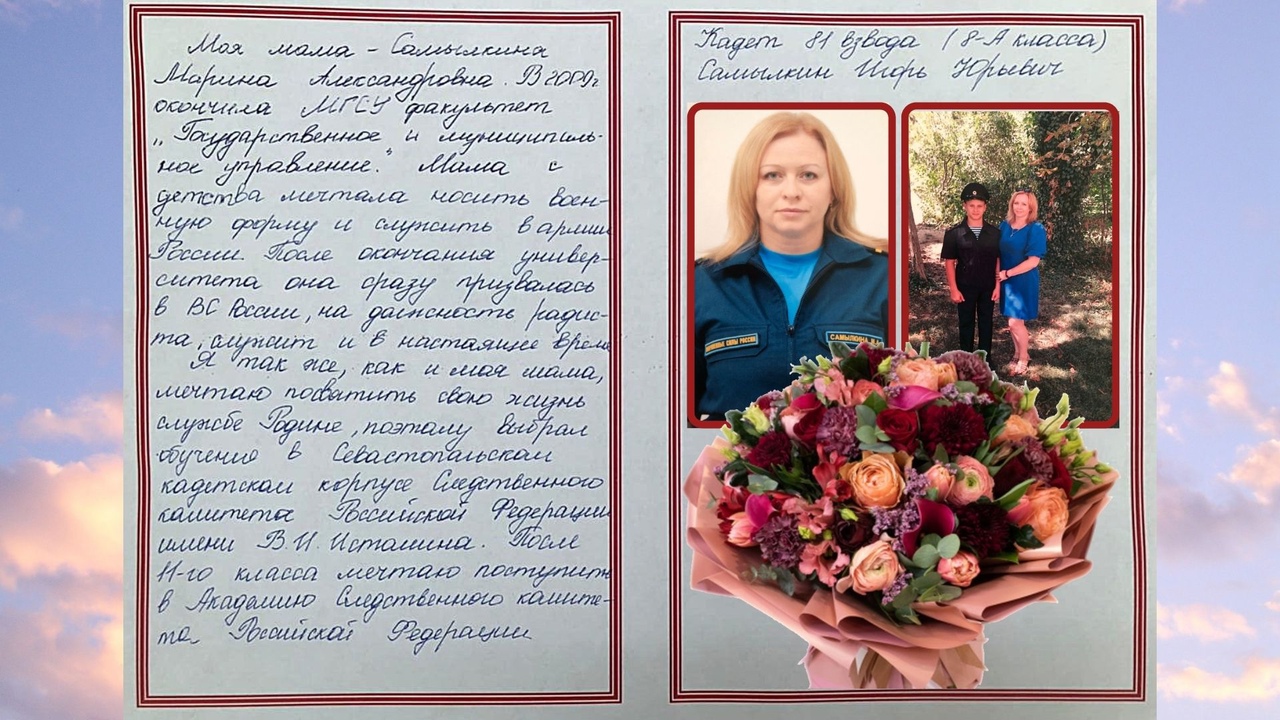 Моя мама - Самылкина
Марина Александровна. В 2009г
окончила МГСУ факультет
„Государственное и муниципаль-
ное управление." Мама с
детства мечтала носить воен-
ную форму и служить в армии
России. После окончания универ-
ситета она сразу призвалась
в ВС России, на должность радис-
та, служит и в настоящее время
Я так же, как и моя мама,
мечтаю посвятить свою жизнь
службе Родине, поэтому выбрал
обучение в Севастопольском
кадетском корпусе Следственного
комитета Российской Федерации
имени В.И. Истомина. После
11-го класса мечтаю поступить
в Академию Следственного комите-
та Российской Федерации
Кадет 81 взвода (8-А класса)
Самылкин Игорь Юрьевич
ВООРУЖЕННЫЕ СИЛЫ РОССИИ
САМЫЛКИНА М.А.